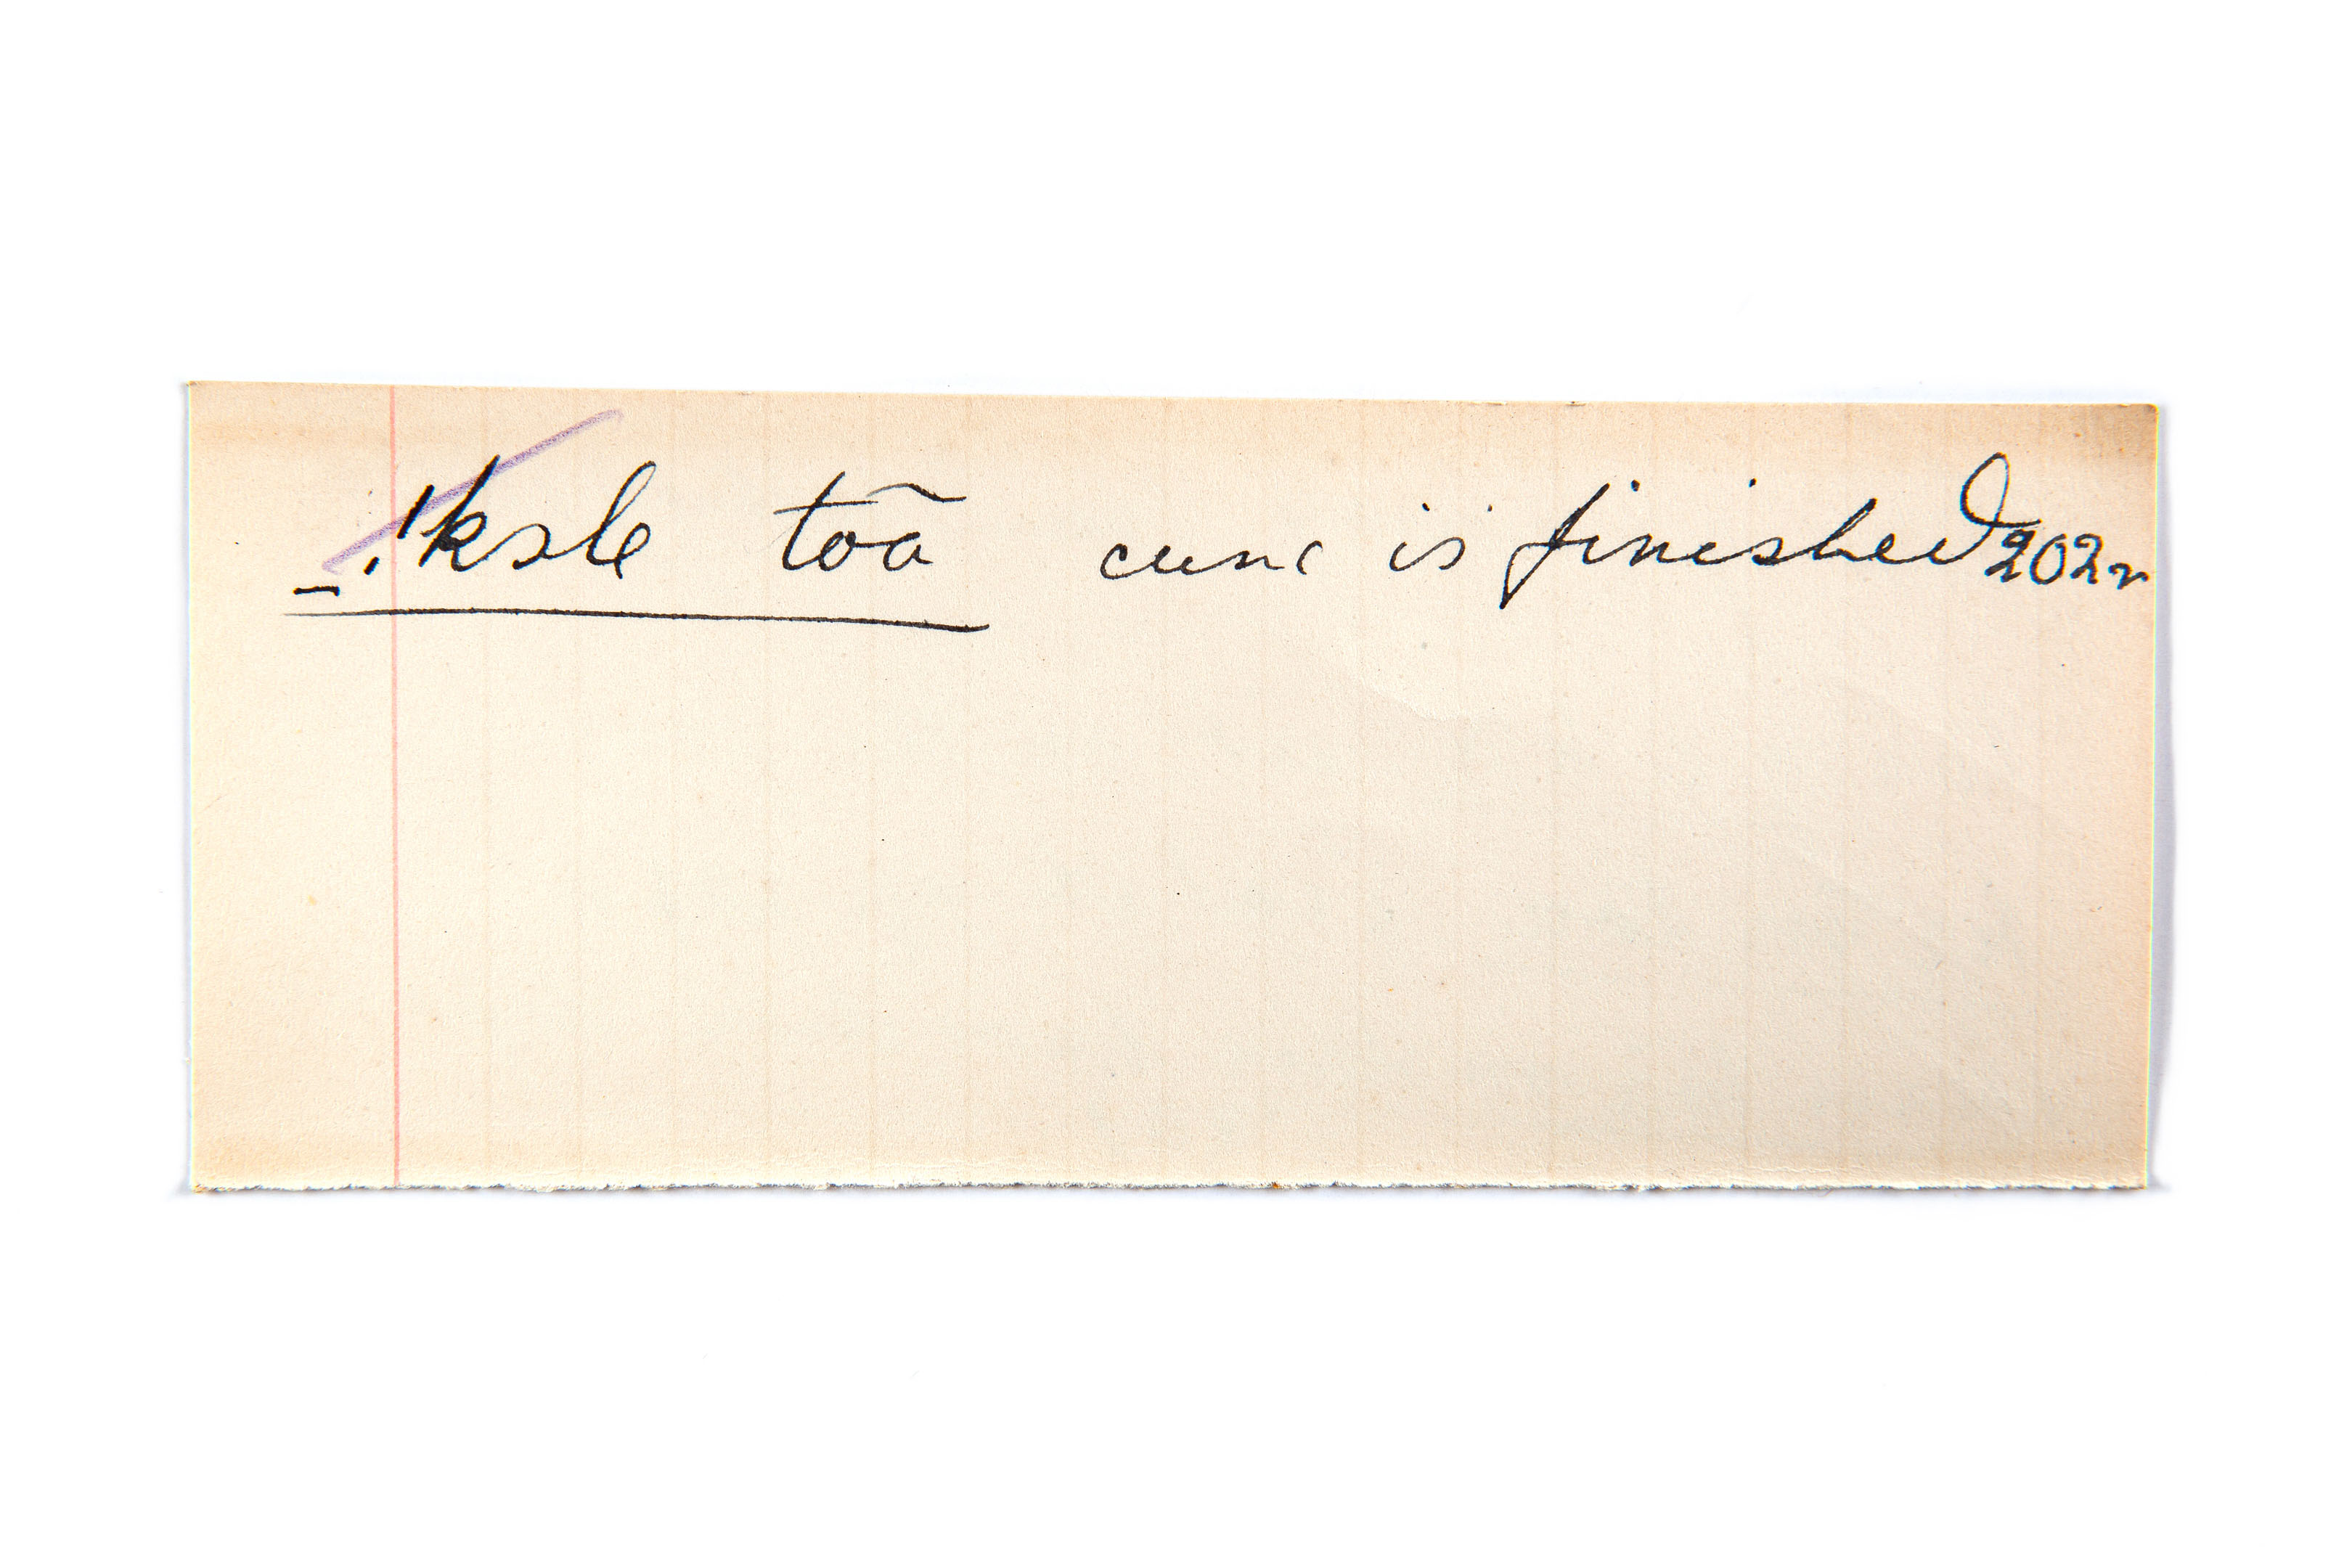 _.'ksle tōā cunc is finished 202r